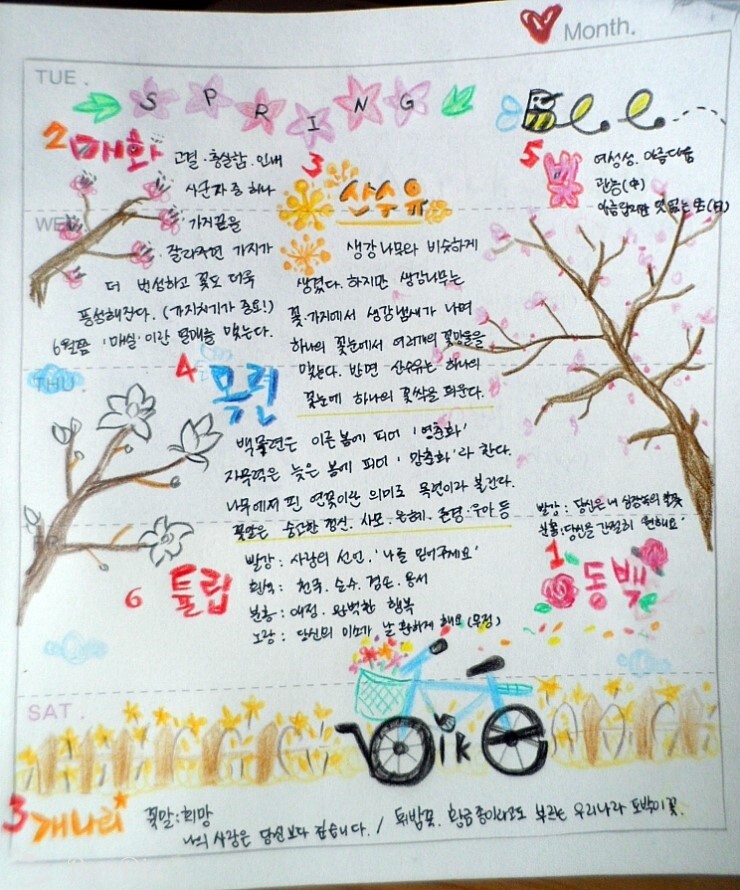 Month.
TUE.
SPRING
Bee
2 매화
고결·충실함·인내
사군자 중 하나
WED.
가지끝을
잘라주면 가지가
더 번성하고 꽃도 더욱
풍성해진다. (가지치기가 중요!)
6월쯤 '매실'이란 열매를 맺는다.
3 산수유
생강나무와 비슷하게
생겼다. 하지만 생강나무는
꽃·가지에서 생강냄새가 나며
하나의 꽃눈에서 여러개의 꽃망울을
맺는다. 반면 산수유는 하나의
꽃눈에 하나의 꽃싹을 피운다.
5 벚꽃
여성성. 아름다움
관능(中)
THU
4 목련
백목련은 이른 봄에 피어 '영춘화'
자목련은 늦은 봄에 피어 '망춘화'라 한다.
나무에서 핀 연꽃이란 의미로 목련이라 불린다.
꽃말은 숭고한 정신. 사모. 은혜. 존경. 우아 등
6 튤립
빨강: 사랑의 선언. '나를 믿어주세요'
흰색: 천국. 순수. 겸손. 용서
분홍: 애정. 완벽한 행복
노랑: 당신의 미소가 날 환하게 해요 (우정)
빨강: 당신은 내 심장속의 불꽃
분홍: 당신을 간절히 원해요'
1 동백
SAT.
Bike
3 개나리
꽃말: 희망
나의 사랑은 당신보다 깊습니다. / 튀밥꽃. 황금종이라고도 부르는 우리나라 토박이꽃.